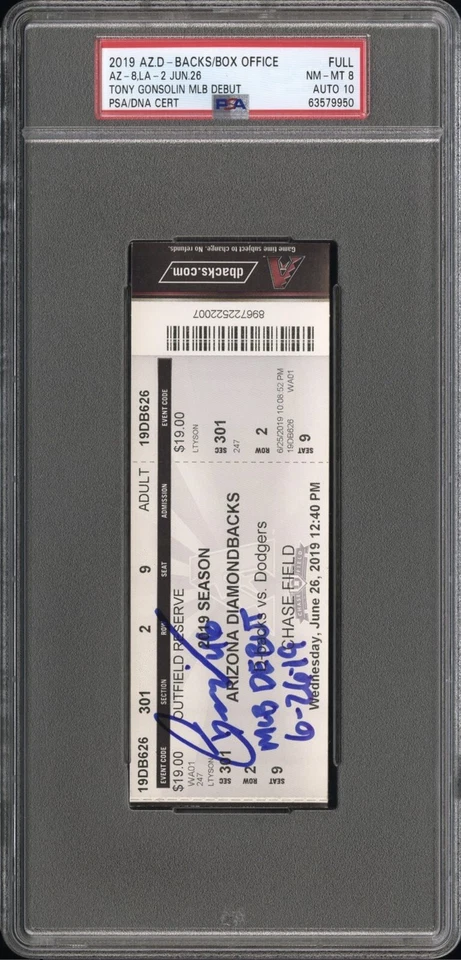 2019 AZ.D-BACKS/BOX OFFICE FULL
AZ-8,LA-2 JUN.26 NM-MT 8
TONY GONSOLIN MLB DEBUT AUTO 10
PSA/DNA CERT PSA 63579950
Game time subject to change. No refunds.
dbacks.com
896722522007
19DB626 301 2 9 ADULT 19DB626
EVENT CODE SECTION ROW SEAT ADMISSION EVENT CODE
$19.00 OUTFIELD RESERVE $19.00
WA01
247
LTYSON
SEC 301
ROW 2
SEAT 9
2019 SEASON
ARIZONA DIAMONDBACKS
D-backs vs. Dodgers
CHASE FIELD
Wednesday, June 26, 2019 12:40 PM
LTYSON
SEC 301
247
ROW 2
6/25/2019 10:08:52 PM
19DB626 WA01
SEAT 9
46
MLB DEBUT
6-26-19